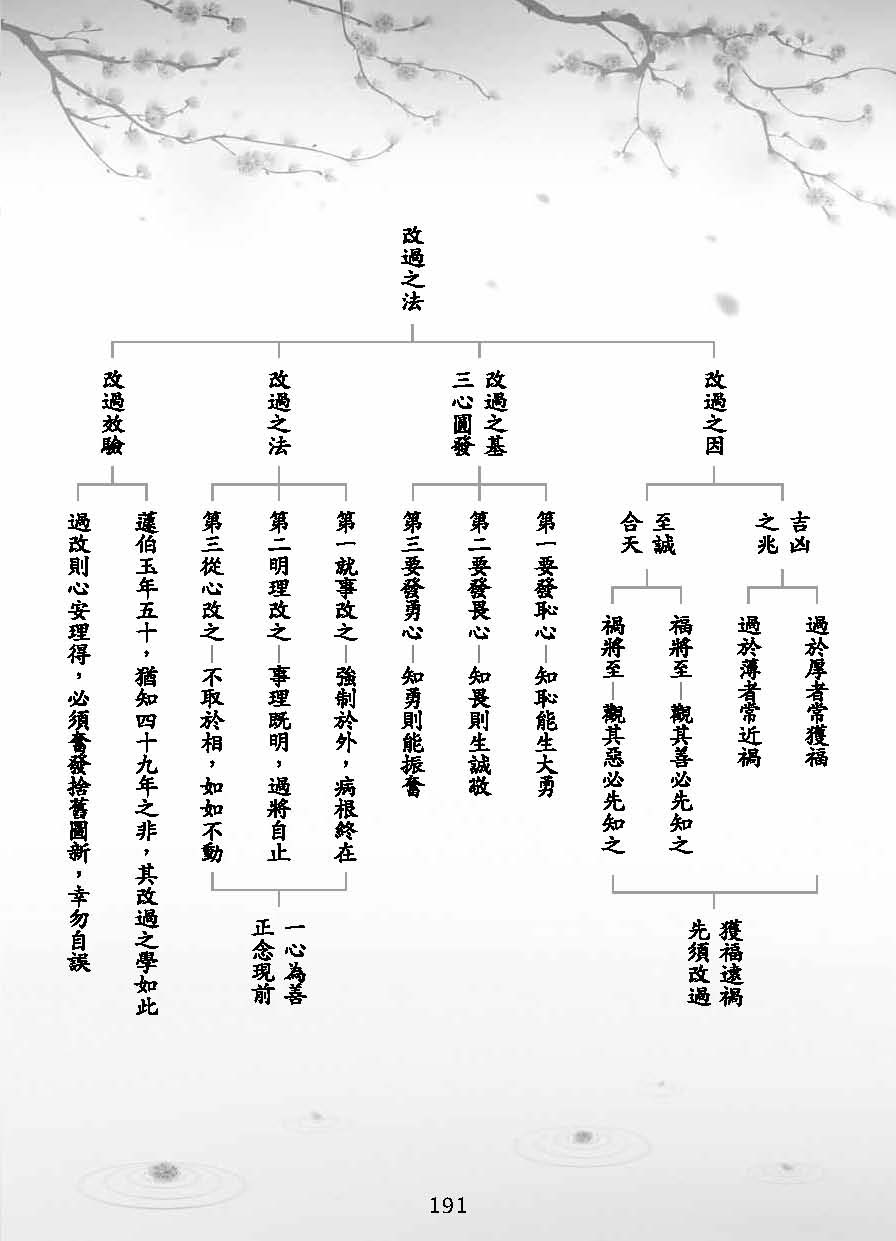 改過之法
改過之因
吉凶
之兆
過於厚者常獲福
過於薄者常近禍
至誠
合天
福將至—觀其善必先知之
禍將至—觀其惡必先知之
獲福遠禍
先須改過
改過之基
三心圓發
第一要發恥心—知恥能生大勇
第二要發畏心—知畏則生誠敬
第三要發勇心—知勇則能振奮
改過之法
第一就事改之—強制於外，病根終在
第二明理改之—事理既明，過將自止
第三從心改之—不取於相，如如不動
一心為善
正念現前
改過效驗
蘧伯玉年五十，猶知四十九年之非，其改過之學如此
過改則心安理得，必須奮發捨舊圖新，幸勿自誤
191